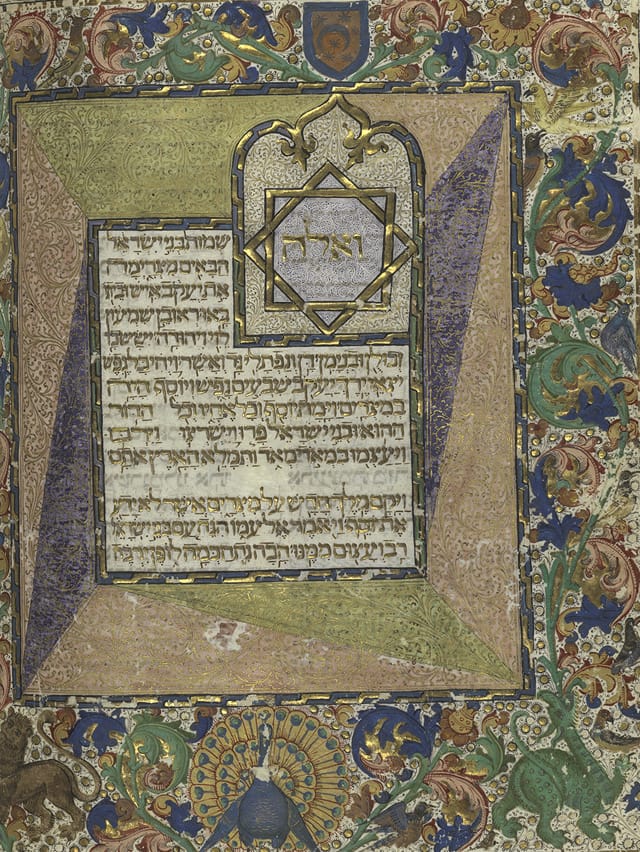 ואלה
שמות בני ישראל
הבאים מצרימה
את יעקב איש וביתו
באו ראובן שמעון
לוי ויהודה יששכר
זבולן ובנימן דן ונפתלי גד ואשר ויהי כל נפש
יצאי ירך יעקב שבעים נפש ויוסף היה
במצרים וימת יוסף וכל אחיו וכל הדור
ההוא ובני ישראל פרו וישרצו וירבו
ויעצמו במאד מאד ותמלא הארץ אתם
ויקם מלך חדש על מצרים אשר לא ידע
את יוסף ויאמר אל עמו הנה עם בני ישראל
רב ועצום ממנו הבה נתחכמה לו פן ירבה